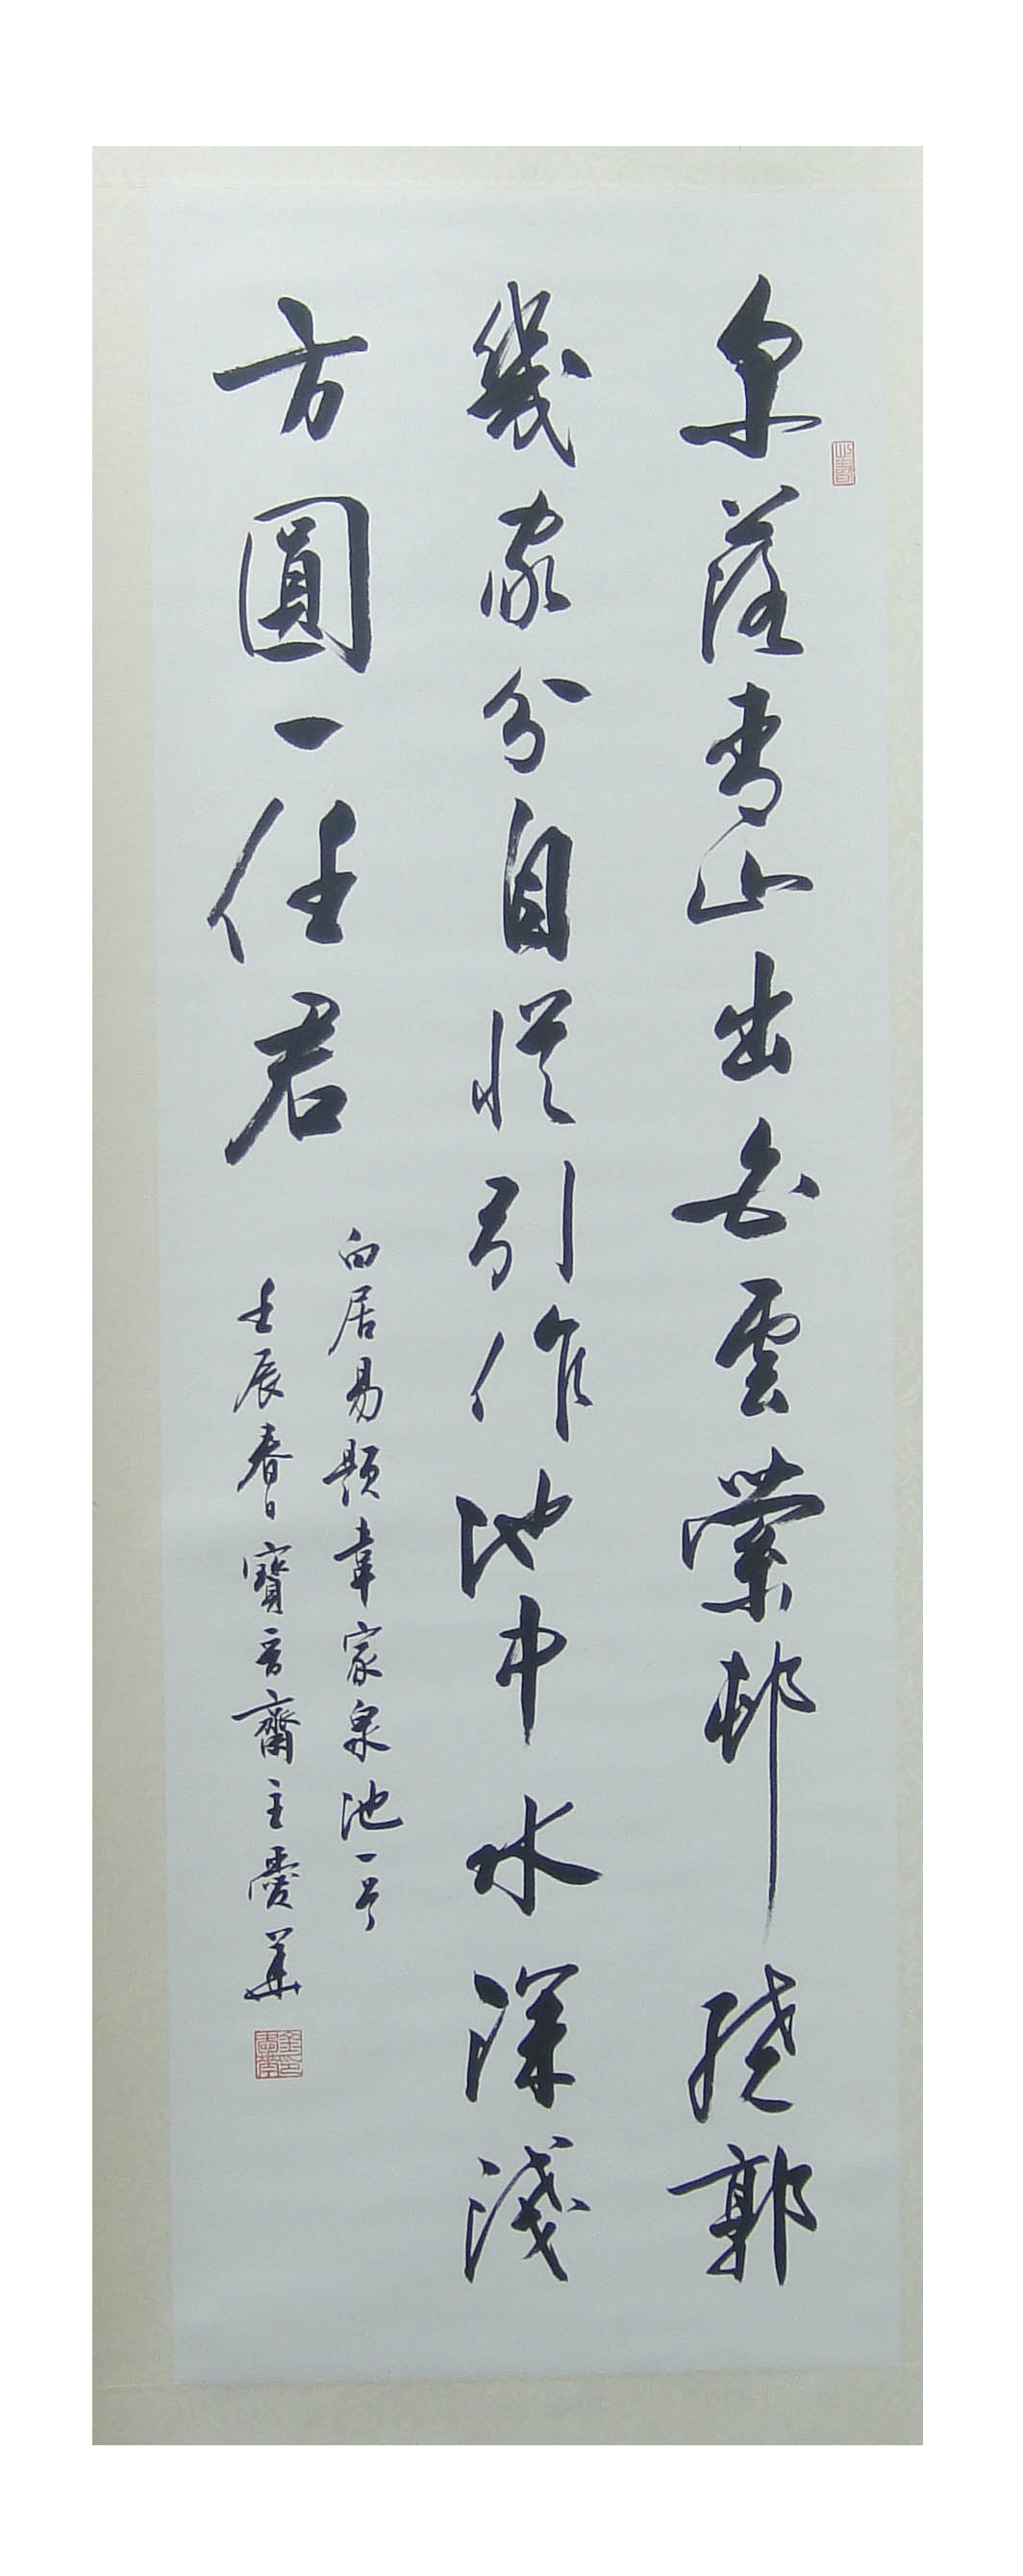 泉落青山出白雲縈邨繞郭
幾家分自從引作池中水深淺
方圓一任君
白居易題韋家泉池一首
壬辰春日寶齋主華